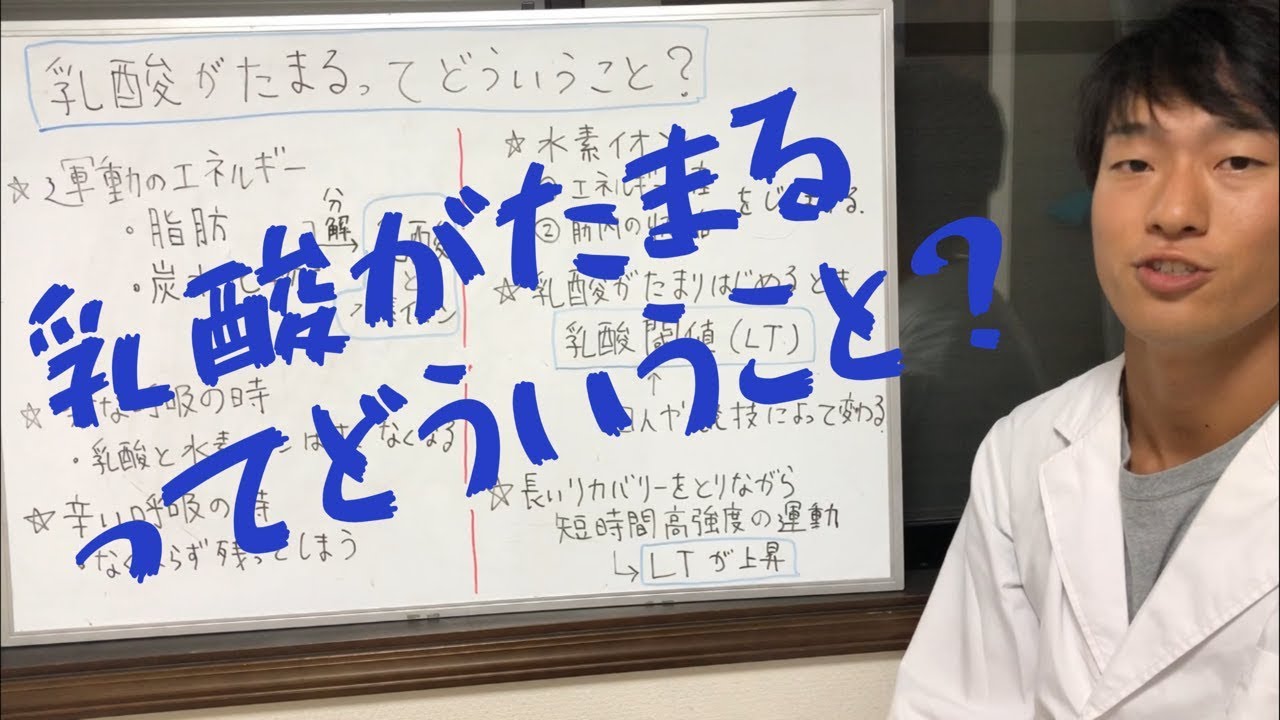 乳酸がたまるってどういうこと?
乳酸がたまる
ってどういうこと?
☆運動のエネルギー
・脂肪
・炭
分解
酸
と
イオン
☆ な呼吸の時
・乳酸と水素 は なくなる
☆辛い呼吸の時
・なくならず残ってしまう
☆水素イオン
エネルギー
② 筋肉の
をじ る.
☆乳酸がたまりはじめるとき
乳酸閾値(LT)
↑
人や 技によって変わる.
☆長いリカバリーをとりながら
短時間高強度の運動
↳ LTが上昇